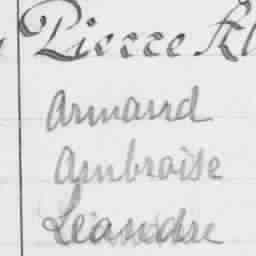 Pierre Al
Armand
Ambroise
Léandre